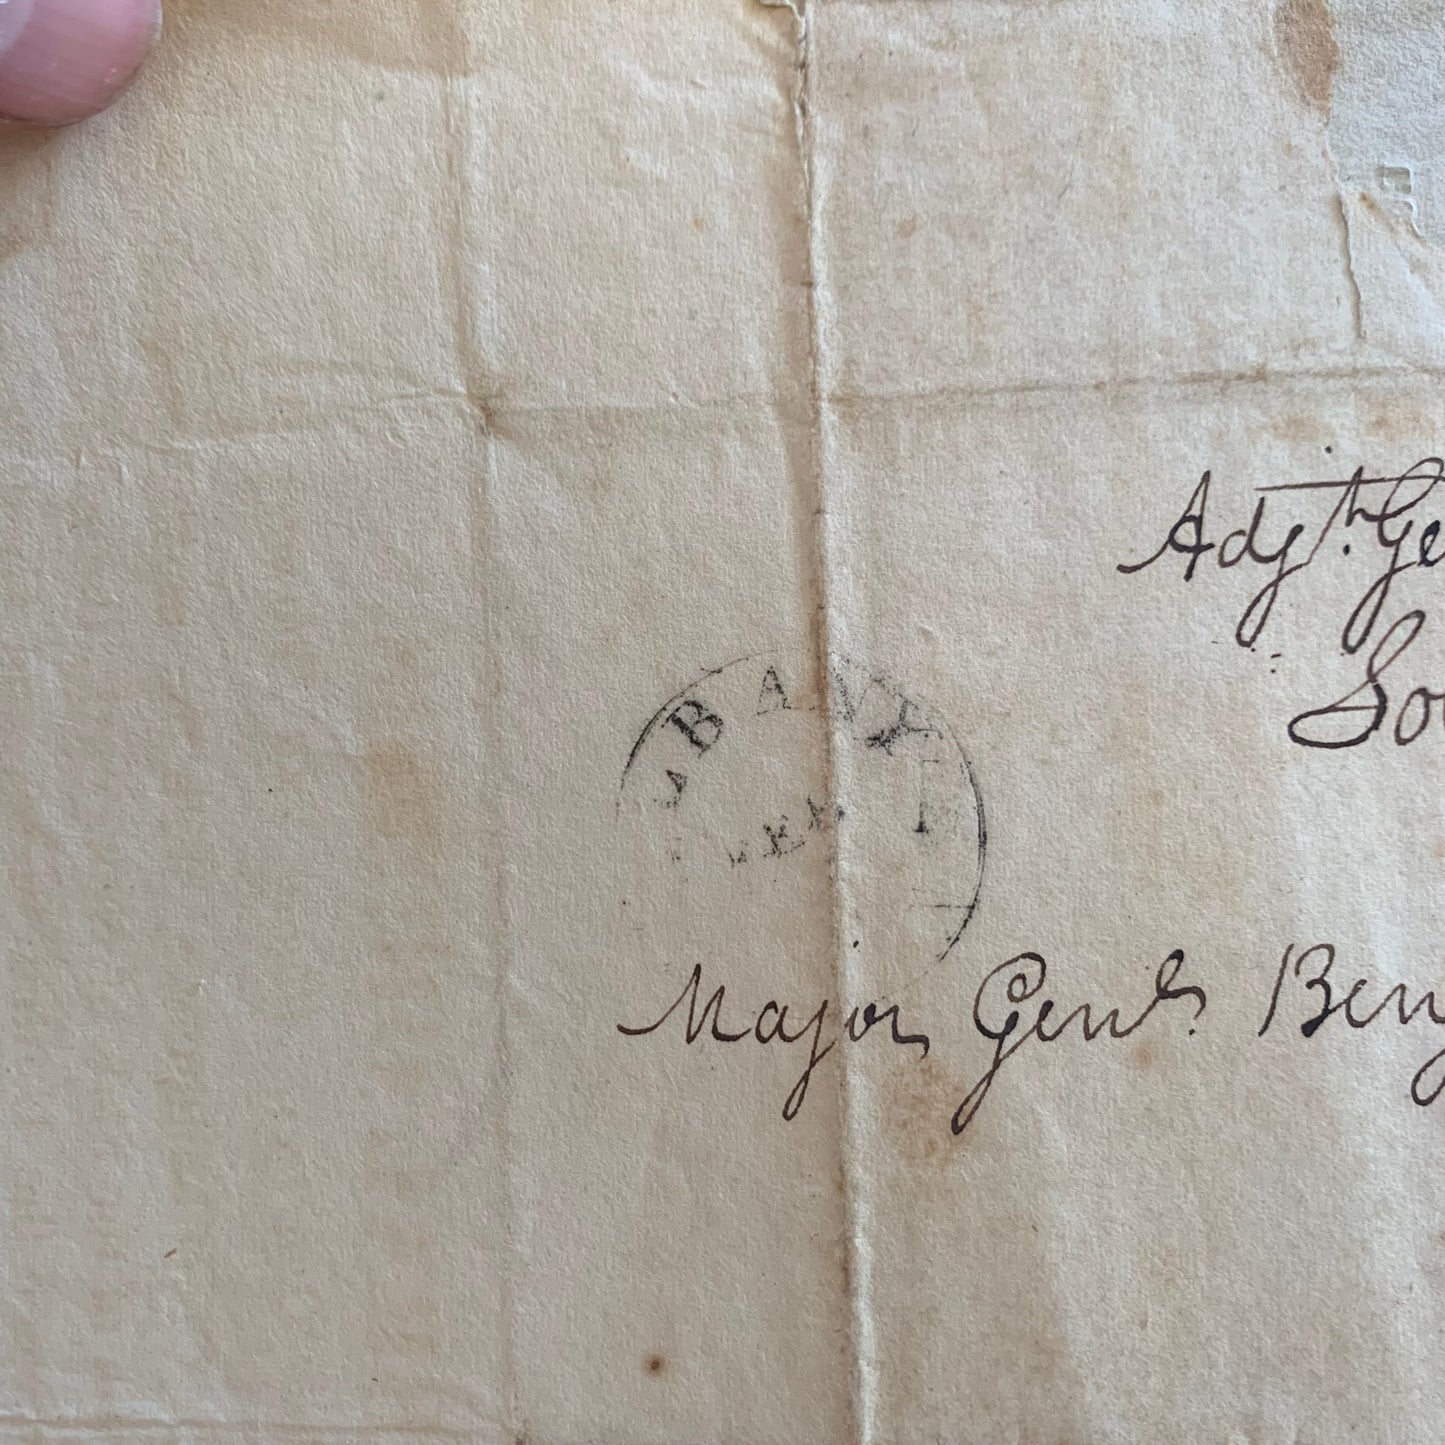 Adjt. Ge
So
BANY
Major Genl. Benj